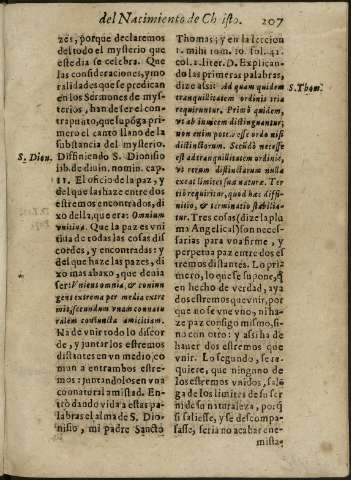 del Nacimiento de Christo. 207
zes, porque declaremos
del todo el mysterio que
este dia se celebra. Que
las consideraciones, y mo
ralidades que se predican
en los Sermones de mys-
terios, han de ser el con-
trapunto, que supõga pri-
mero el canto llano de la
substancia del mysterio.
S. Dion. Diffiniendo S. Dionisio
lib. de diuin. nomin. cap.
11. El oficio de la paz, y
del que las haze entre dos
estremos encontrados, di
xo della, que era: Omnium
vnitiua. Que la paz es vni
tiua de todas las cosas dis
cordes, y encontradas: y
del que haze las pazes, di
xo mas abaxo, que deuia
ser: Vniens omnia, & coniun
gens extrema per media extre
mis, secundum vnam connatu
ralem coniuncta amicitiam.
Ha de vnir todo lo discor
de, y juntar los estremos
distantes en vn medio, co
mun a entrambos estre-
mos: juntandolos en vna
connatural amistad. En-
trò dando vida a estas pa-
labras el alma de S. Dio-
nisio, mi padre Sancto
Thomas; y en la leccion
1. mihi tom. 10. fol. 42.
col. 2. liter. D. Explican-
do las primeras palabras,
dize assi: Ad quam quidem S. Thom.
tranquilitatem ordinis tria
requiruntur. Primò quidem,
vt ab inuicem distinguantur;
non enim potest esse ordo nisi
distinctorum. Secũdò necesse
est ad tranquilitatem ordinis,
vt rerum distinctarum nulla
exeat limites suæ naturæ. Ter
tiò requiritur, quod hæc diffi-
nitio, & terminatio stabilia-
tur. Tres cosas (dize la plu
ma Angelical) son neces-
sarias para vna firme, y
perpetua paz entre dos es
tremos distantes. Lo pri-
mero, lo que se supone, q̃
en hecho de verdad, aya
dos estremos que vnir, por
que no se vne vno, ni ha-
ze paz consigo mismo, si-
no con otro: y assi ha de
hauer dos estremos que
vnir. Lo segundo, se re-
quiere, que ninguno de
los estremos vnidos, sal-
ga de los limites de su ser
ni de su naturaleza, porq̃
si saliesse, y se descompa-
sasse, seria no acabar ene-
mista-